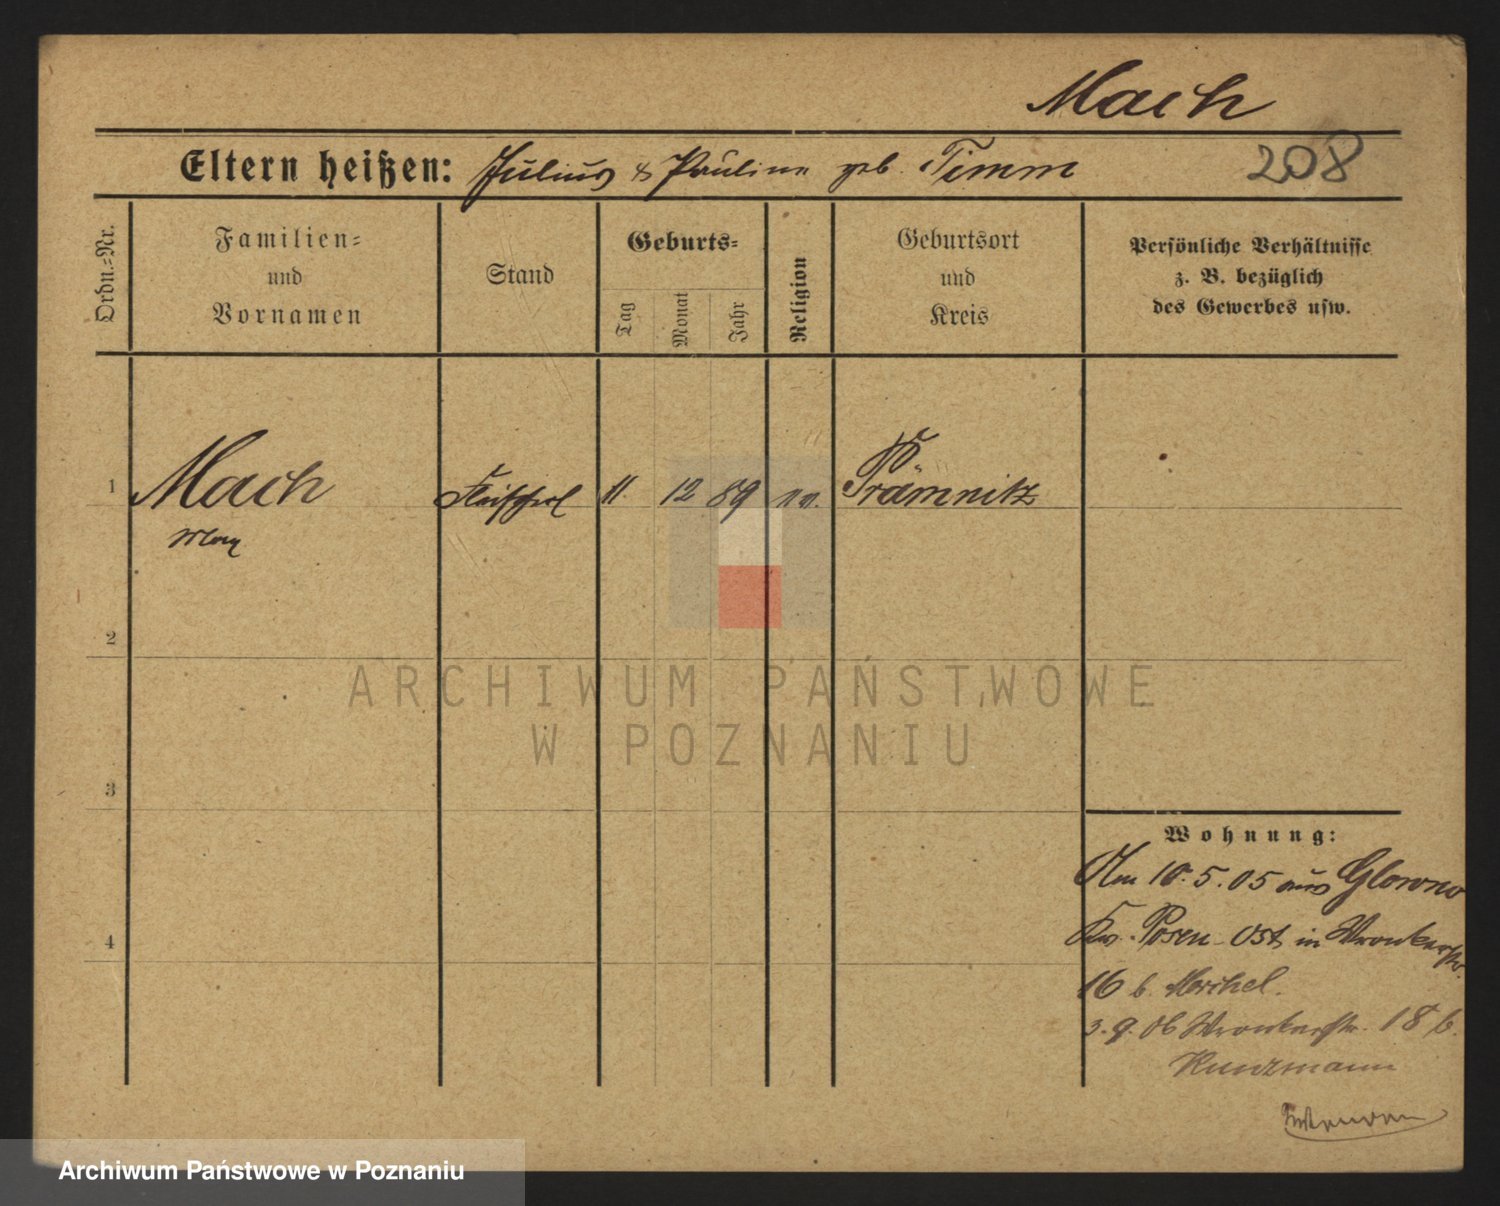 Mach
Eltern heißen: Julius & Pauline geb. Timm
208
Ordn.=Nr.
Familien=
und
Vornamen
Stand
Geburts=
Tag
Monat
Jahr
Religion
Geburtsort
und
Kreis
Persönliche Verhältnisse
z. B. bezüglich
des Gewerbes usw.
1
Mach
Max
11 12 89
Prämnitz
2
ARCHIWUM PAŃSTWOWE
W POZNANIU
3
Wohnung:
Am 10.5.05 aus Glowno
4
Posen-Ost in Wronkerstr.
16 b.
3.9.06 Wronkerstr. 18 b.
Kunzmann
Archiwum Państwowe w Poznaniu